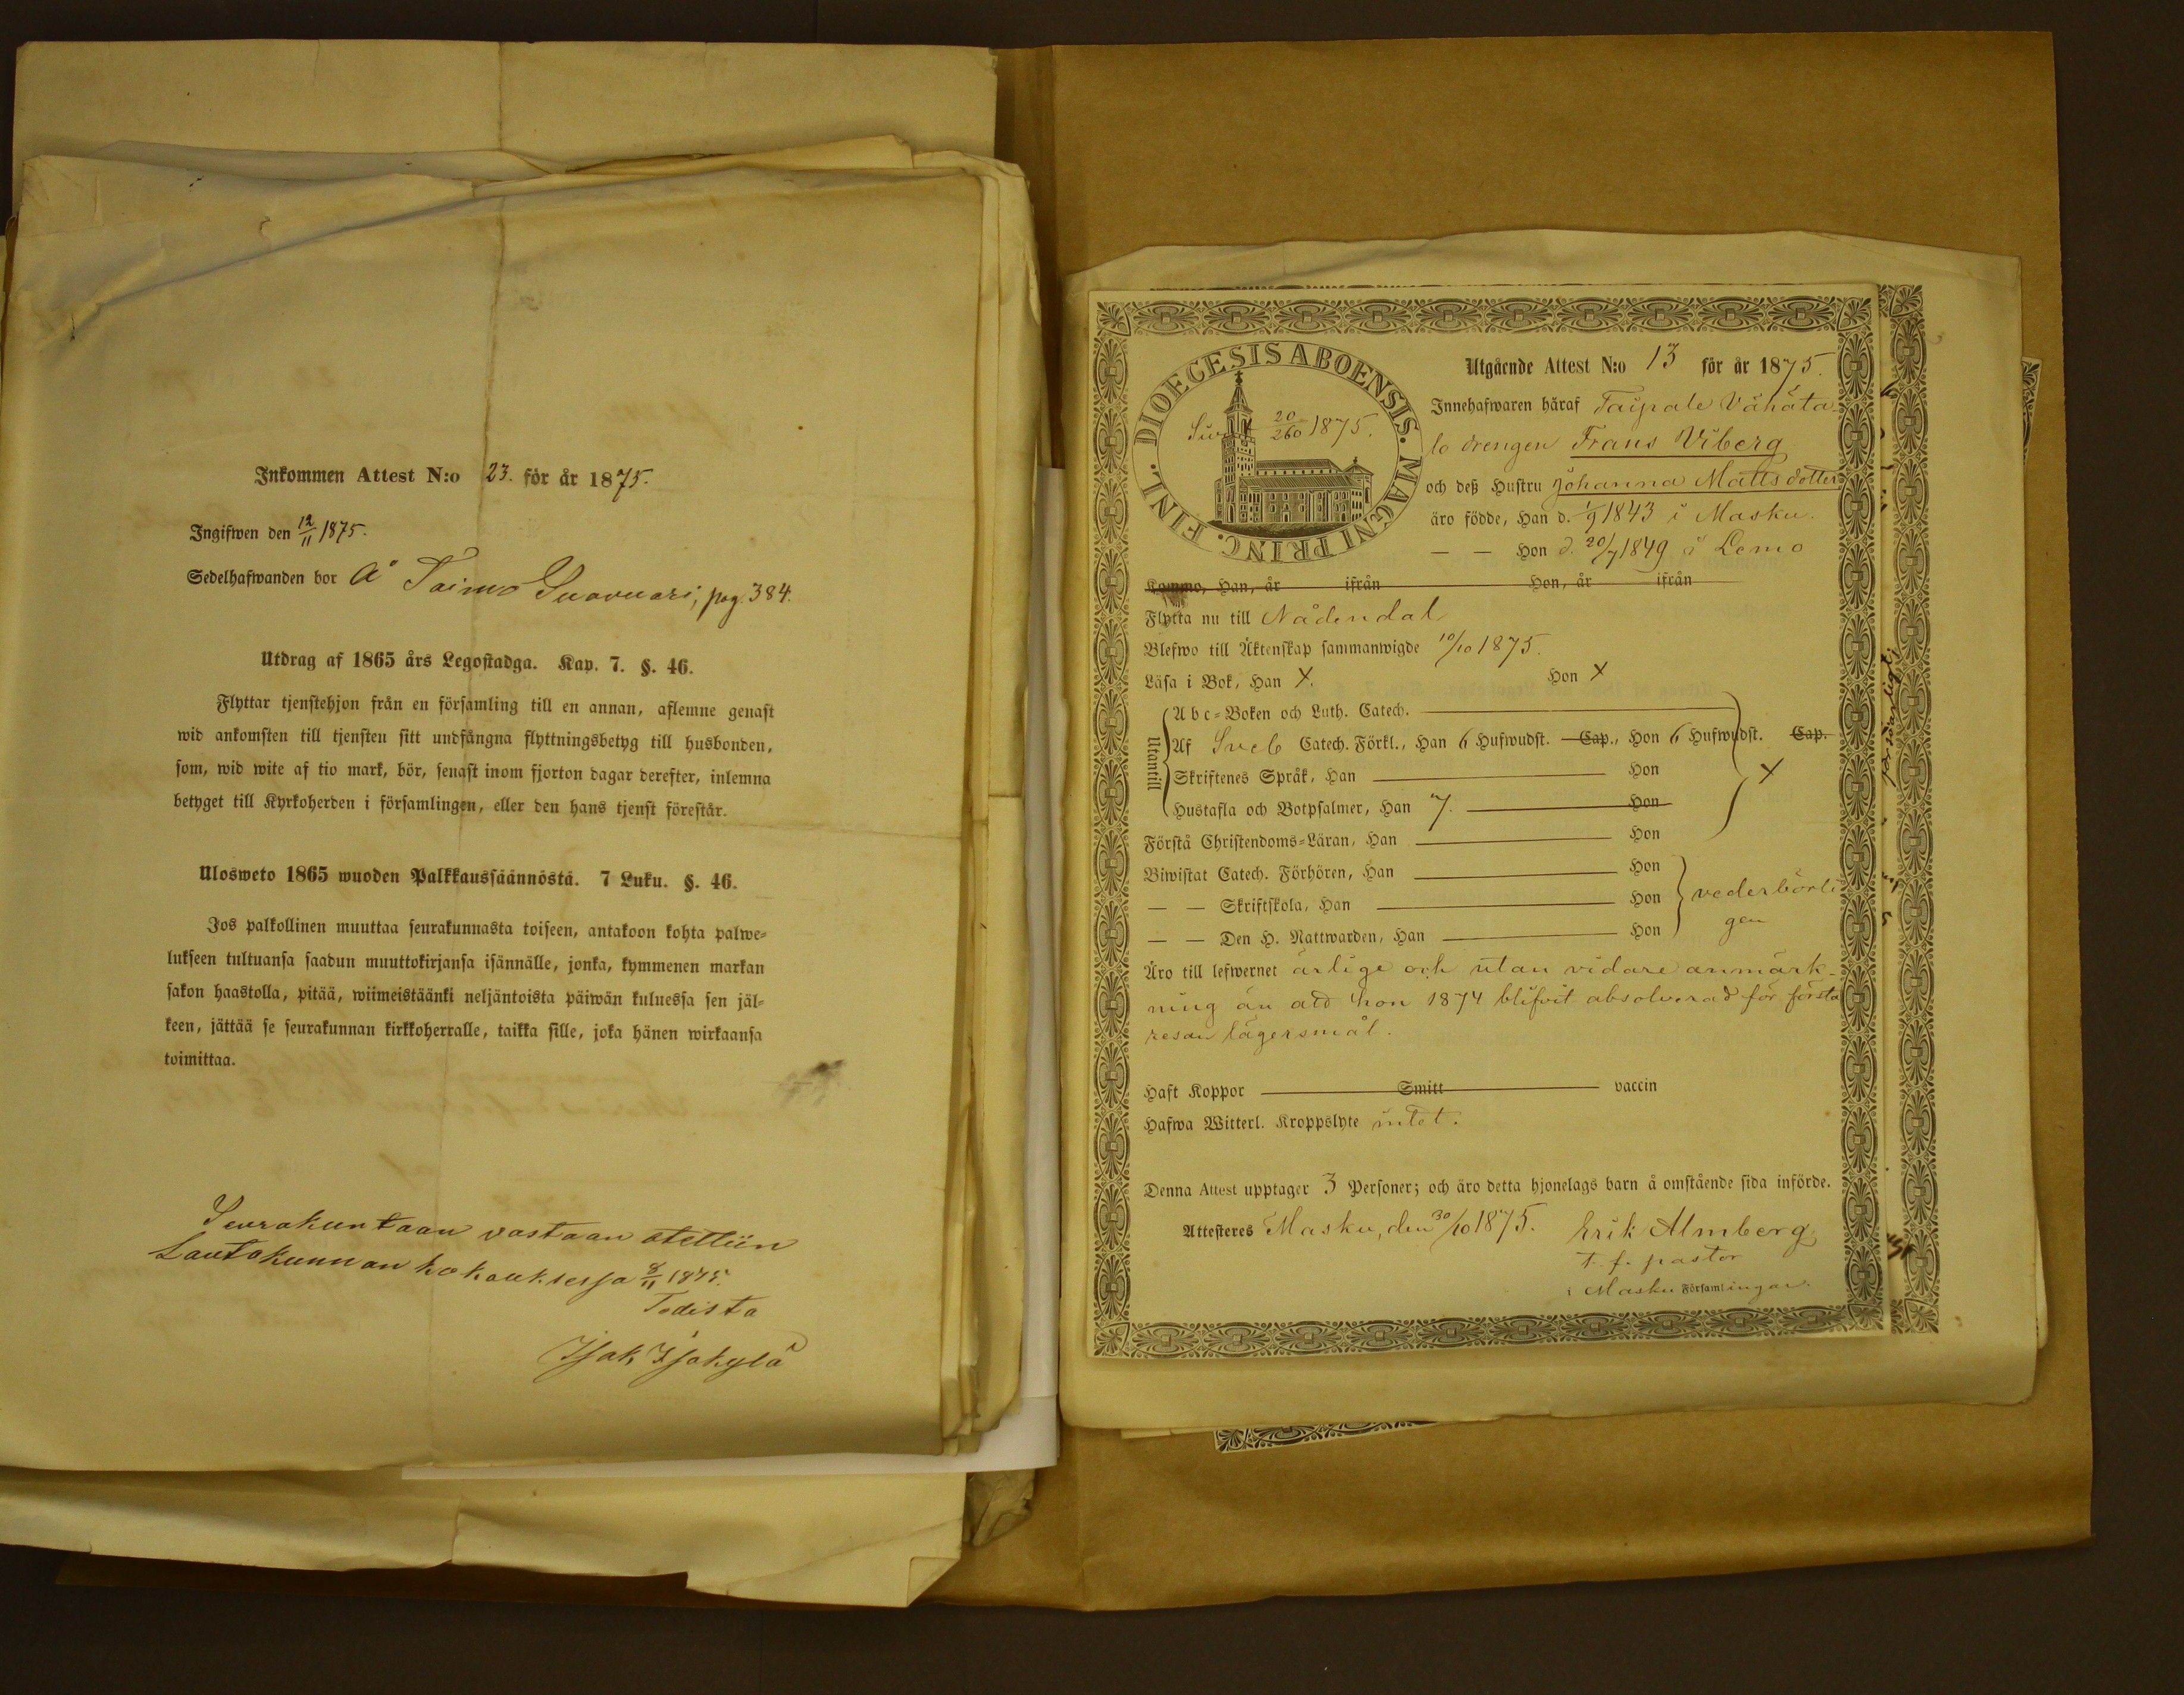 Inkommen Attest N:o 23. för år 1875.
Ingifwen den 12/11 1875.
Sedelhafwanden bor å Taimo Suovuori, pag. 384.
Utdrag af 1865 års Legostadga. Kap. 7. §. 46.
Flyttar tjenstehjon från en församling till en annan, aflemne genast
wid ankomsten till tjensten sitt undfångna flyttningsbetyg till husbonden,
som, wid wite af tio mark, bör, senast inom fjorton dagar derefter, inlemna
betyget till Kyrkoherden i församlingen, eller den hans tjenst förestår.
Ulosweto 1865 wuoden Palkkaussäännöstä. 7 Luku. §. 46.
Jos palkollinen muuttaa seurakunnasta toiseen, antakoon kohta palwe-
lukseen tultuansa saadun muuttokirjansa isännälle, jonka, kymmenen markan
sakon haastolla, pitää, wiimeistäänki neljäntoista päiwän kuluessa sen jäl-
keen, jättää se seurakunnan kirkkoherralle, taikka sille, joka hänen wirkaansa
toimittaa.
Seurakuntaan vastaan otettiin
Lautakunnan kokouksessa 8/11 1875.
Todista
Isak Isokylä
DIOECESIS ABOENSIS. MAGNI PRINC. FINL.
20/260 1875.
Utgående Attest N:o 13 för år 1875.
Innehafwaren häraf Taipale Vähäta-
lo drengen Frans Viberg
och deß Hustru Johanna Mattsdotter
äro födde, Han d. 1/9 1843 i Masku.
— — Hon d. 20/7 1849 i Lemo
Kommo, Han, år ifrån Hon, år ifrån
Flytta nu till Nådendal
Blefwo till Äktenskap sammanwigde 10/10 1875.
Läsa i Bok, Han X. Hon X
Utantill
Abc-Boken och Luth. Catech.
Af Sveb Catech. Förkl., Han 6 Hufwudst. Cap., Hon 6 Hufwudst. Cap.
Skriftenes Språk, Han Hon
X
Hustafla och Botpsalmer, Han 7. Hon
Förstå Christendoms-Läran, Han Hon
Biwistat Catech. Förhören, Han Hon
— — Skriftskola, Han Hon vederbörli
— — Den H. Nattwarden, Han Hon gen
Äro till lefwernet ärlige och utan vidare anmärk-
ning än att hon 1874 blifvit absolverad för första
resan lägersmål.
Haft Koppor Smitt vaccin
Hafwa Witterl. Kroppslyte intet.
Denna Attest upptager 3 Personer; och äro detta hjonelags barn å omstående sida införde.
Attesteres Masku, den 30/10 1875. Erik Almberg,
t. f. pastor
i Masku Församlingar.